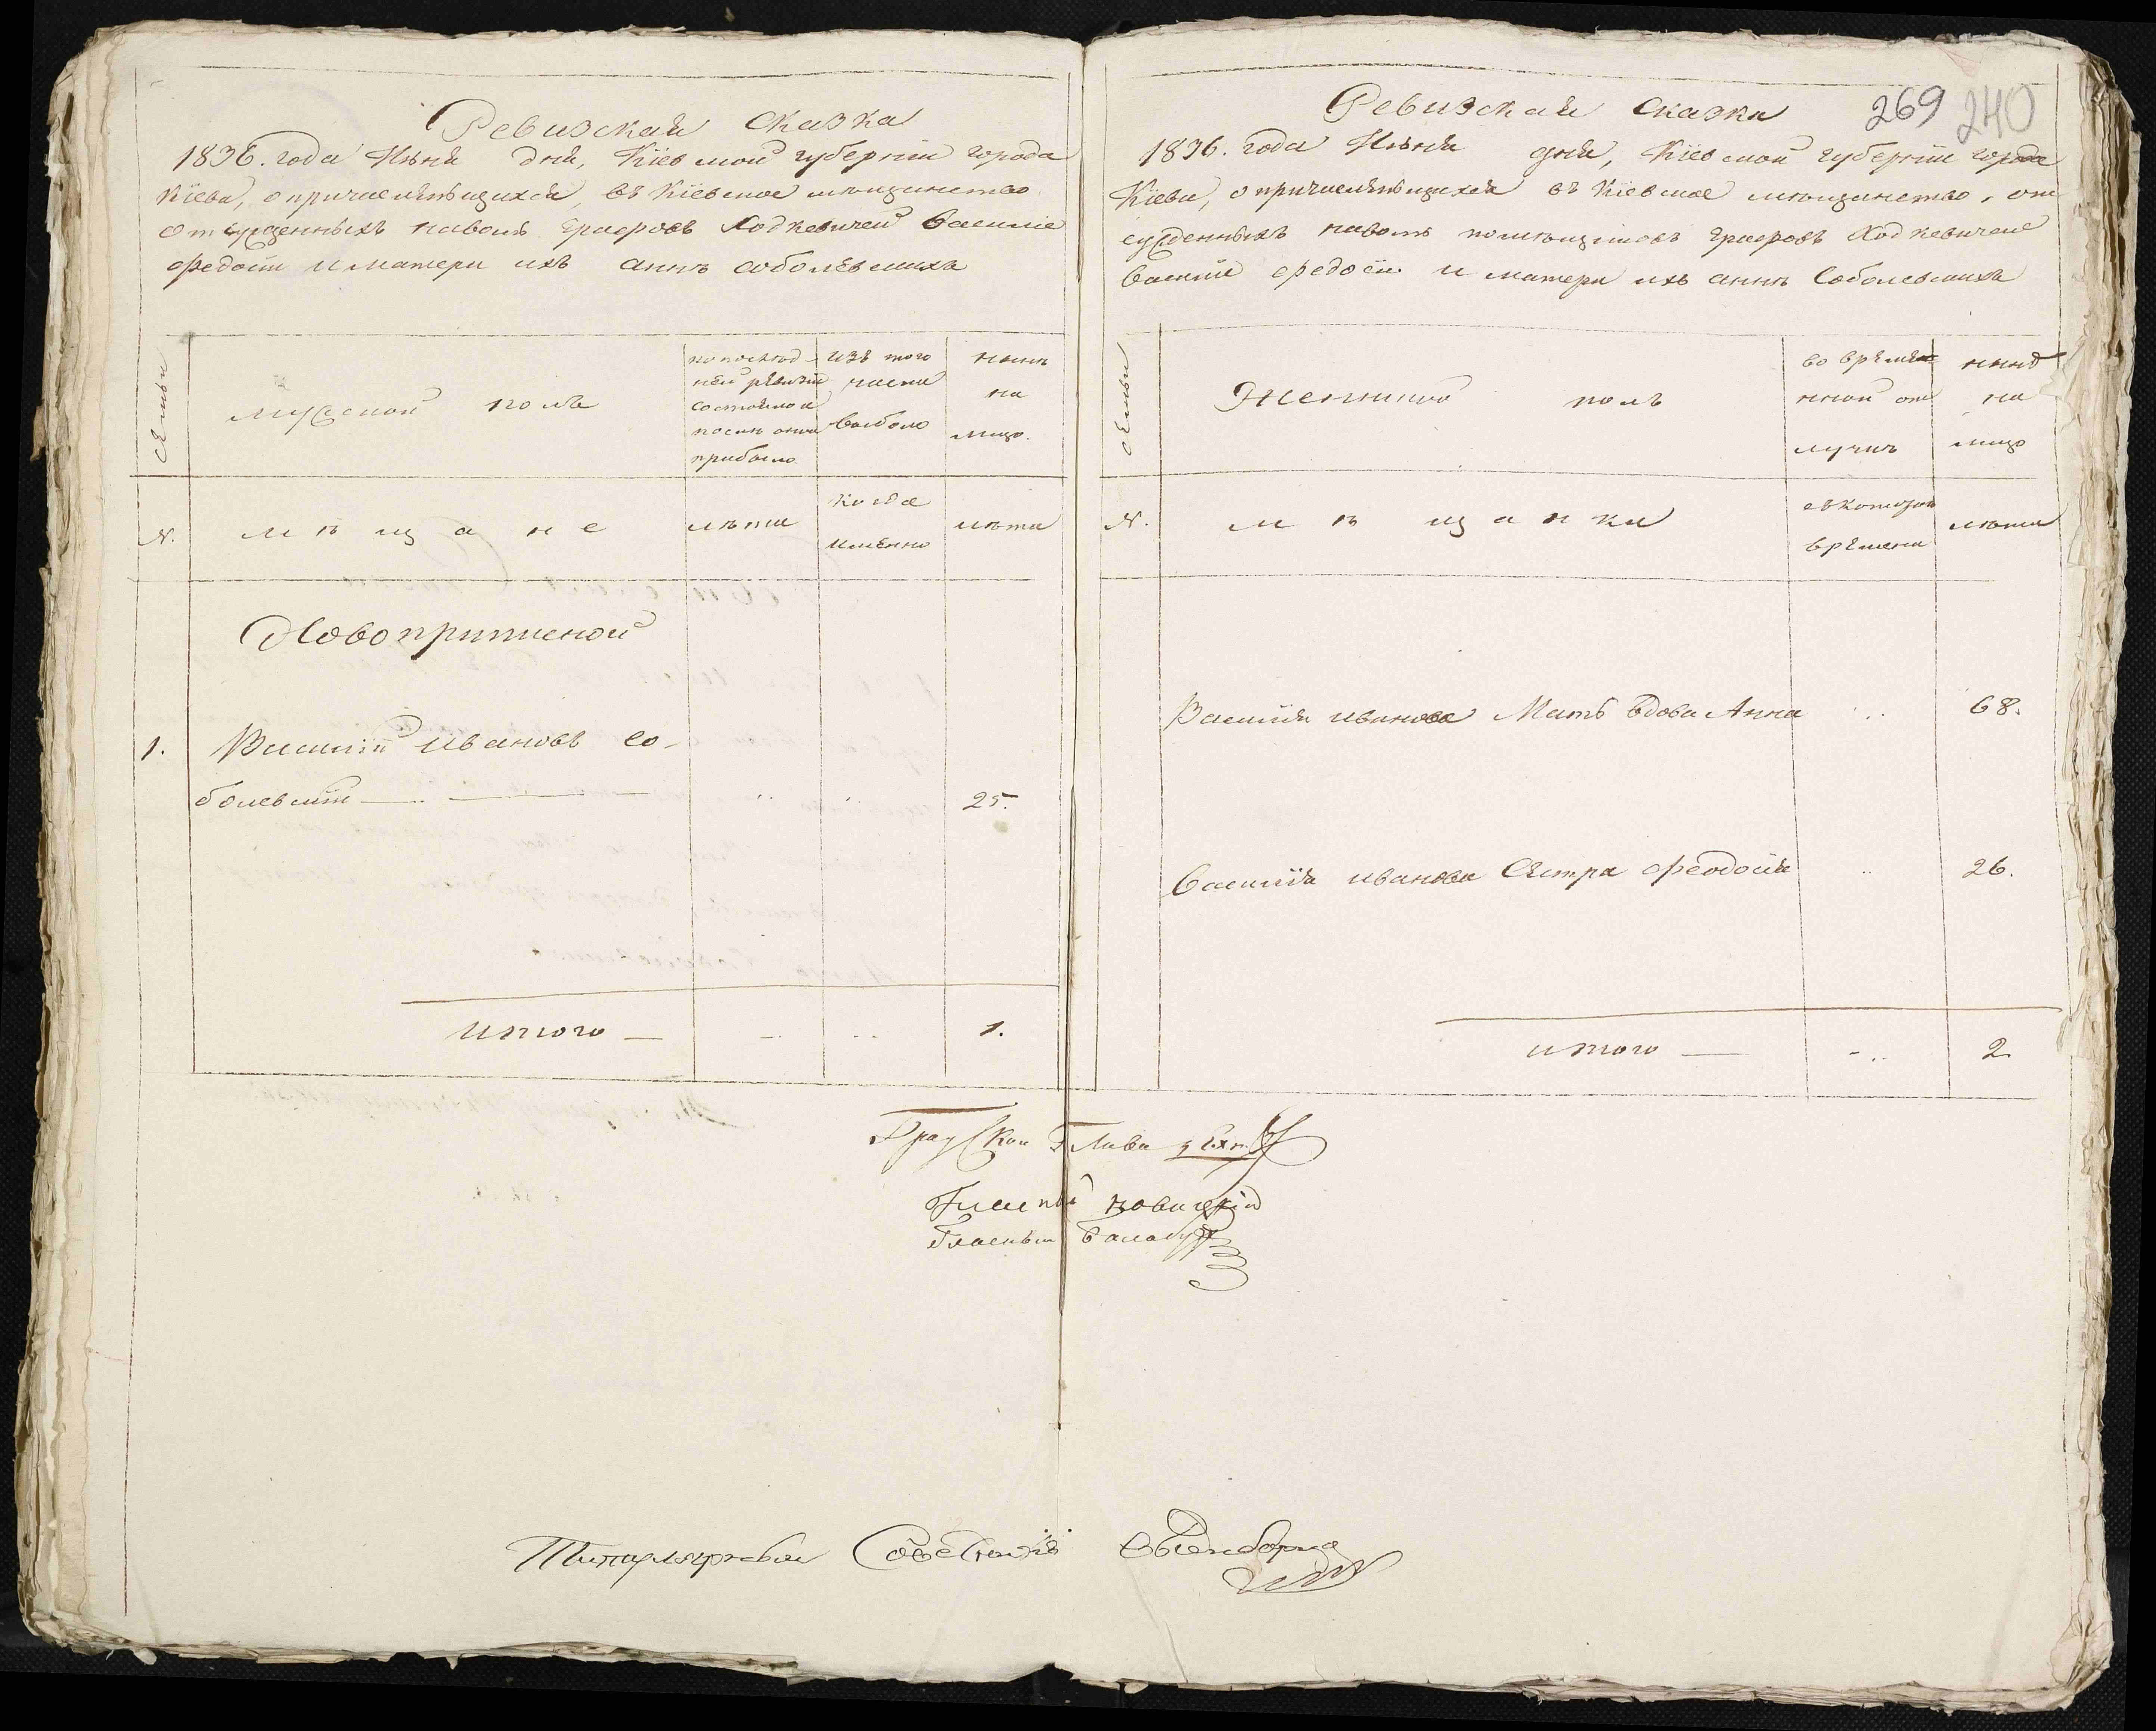 Ревизская сказка
1836. года Июня дня, Кіевской губерніи города
Кіева, о причисляющихся въ Кіевское мещанство
отсужденныхъ графовъ Ходкевичей Василіе
Федосіи и матери ихъ Аннѣ Соболевскихъ
семьи
мужеской полъ
по послед-
ней ревизіи
состояло и
после оной
прибыло
изъ того
числа
выбыло
нынѣ
на
лицо.
№.
мѣщане
лѣта
когда
именно
лѣта
Новоприписной
1. Василій Ивановъ Со-
болевскій 25.
итого — 1.
269 240
Ревизская сказка
1836. года Июня дня, Кіевской губерніи города
Кіева, о причисляющихся въ Кіевское мещанство, от
сужденныхъ помещиковъ графовъ Ходкевичей
Василіе Федосіи и матери ихъ Аннѣ Соболевскихъ
семьи
Женский полъ
во времен
нной от
лучкѣ
нынѣ
на
лицо
№.
мѣщанки
съ котораго
времени
лѣта
Василія Иванова Мать вдова Анна 68.
Василія Иванова Сестра Феодосія 26.
итого — 2.
Градской Глава
Гласный
Гласный
Титулярной Советникъ